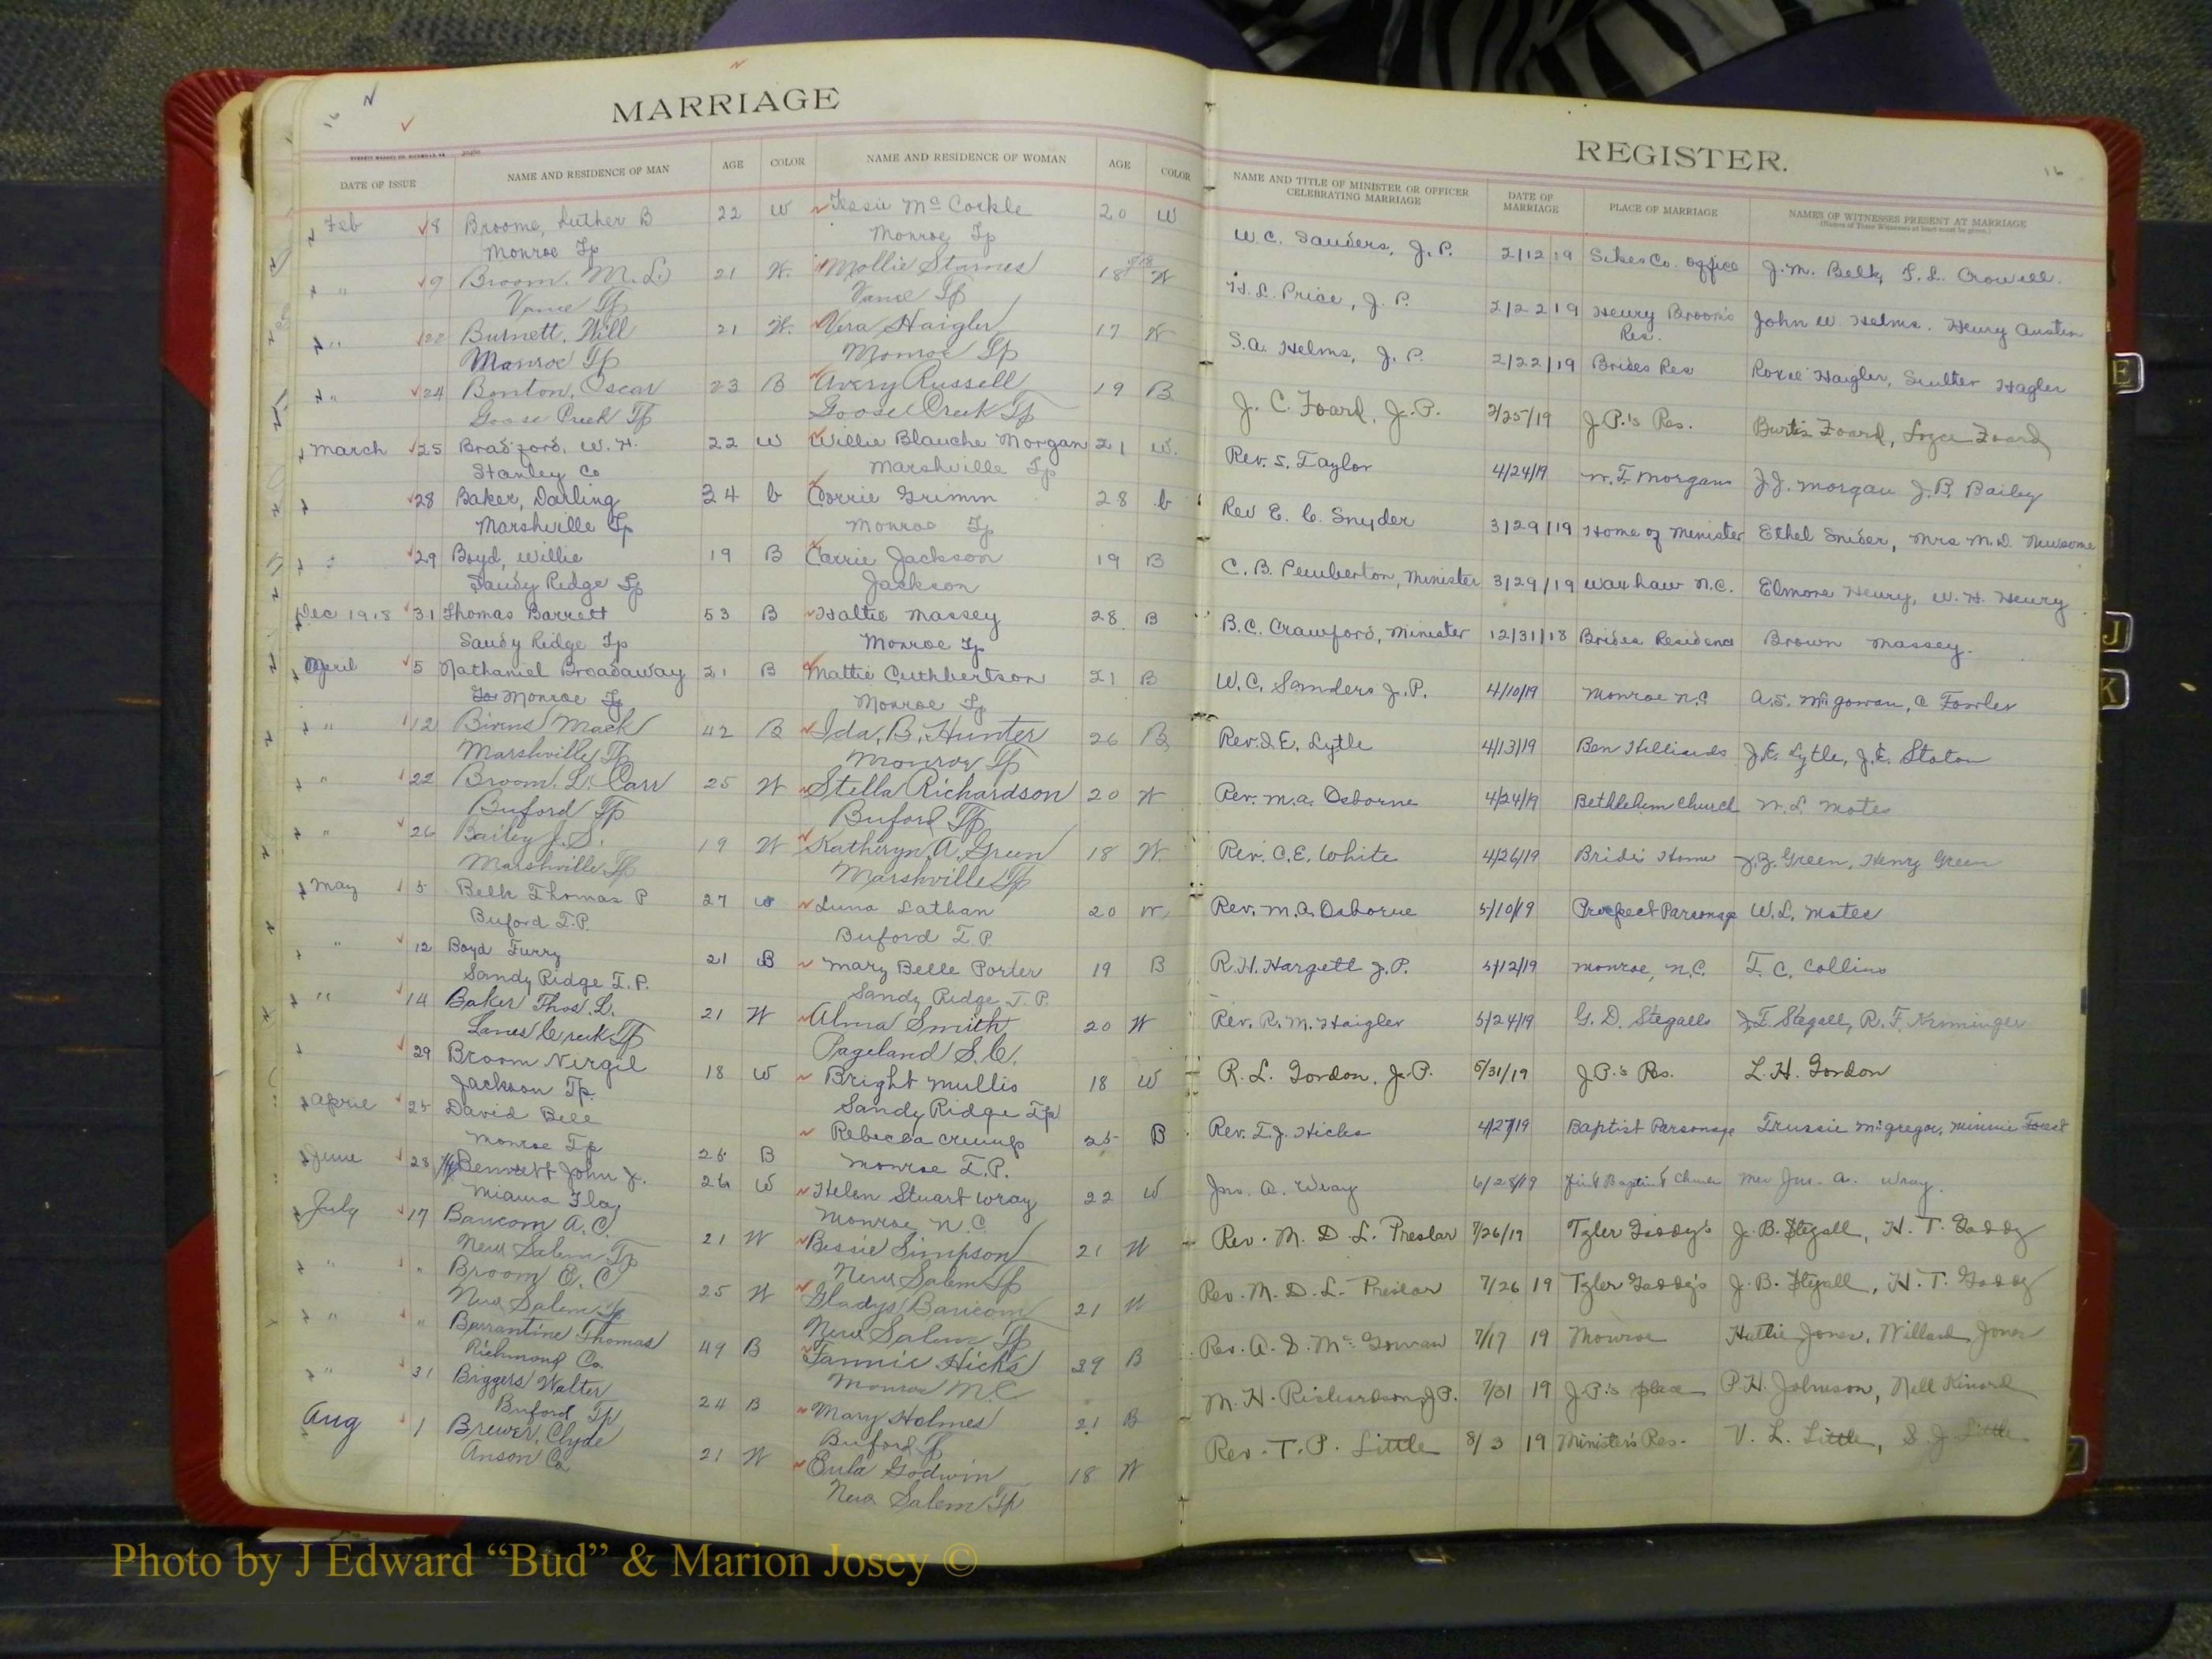 MARRIAGE
REGISTER.
16
16
DATE OF ISSUE NAME AND RESIDENCE OF MAN AGE COLOR NAME AND RESIDENCE OF WOMAN AGE COLOR
NAME AND TITLE OF MINISTER OR OFFICER CELEBRATING MARRIAGE DATE OF MARRIAGE PLACE OF MARRIAGE NAMES OF WITNESSES PRESENT AT MARRIAGE
Feb 8 Broome, Luther B 22 W Jessie McCorkle 20 W W. C. Sanders, J. P. 2/12/19 Sikes Co. Office J. M. Belk, T. L. Crowell.
Monroe Tp Monroe Tp
" 9 Broom, M. L. 21 W. Mollie Starnes 18 W H. L. Price, J. P. 2/22/19 Henry Broom's Res. John W Helms. Henry Austin
Vance Tp Vance Tp
" 22 Burnett, Will 21 W. Vera Haigler 17 W S. A. Helms, J. P. 2/22/19 Brides Res Roxie Haigler, Hagler
Monroe Tp Monroe Tp
" 24 Benton, Oscar 23 B Avery Russell 19 B J. C. Foard, J. P. 2/25/19 J. P.'s Res. Burtis Foard, Foard
Goose Creek Tp Goose Creek Tp
March 25 Bradford, W. H. 22 W Willie Blanche Morgan 21 W. Rev. S. Taylor 4/24/19 W. T. Morgans J. J. Morgan J. B. Bailey
Stanley Co Marshville Tp
28 Baker, Darling 34 b Corrie Grimm 28 b Rev E. C. Snyder 3/29/19 Home of Minister Ethel Snider, Mrs M. D. Newsome
Marshville Tp Monroe Tp
29 Boyd, Willie 19 B Carrie Jackson 19 B C. B. Pemberton, Minister 3/29/19 Waxhaw N.C. Elmore Henry, W. H. Henry
Sandy Ridge Tp Jackson
Dec 1918 31 Thomas Barrett 53 B Hattie Massey 28 B B. C. Crawford, Minister 12/31/18 Brides Residence Brown Massey.
Sandy Ridge Tp Monroe Tp
April 5 Nathaniel Broadaway 21 B Mattie Cuthbertson 21 B W. C. Sanders J. P. 4/10/19 Monroe N.C A. S. McGowan, C Fowler
Monroe Tp Monroe Tp
" 12 Bivins Mack 42 B Ida, B. Hunter 26 B Rev. J. E. Lytle 4/13/19 Ben Hilliards J. E. Lytle, J. E. Staton
Marshville Tp Monroe Tp
" 22 Broom, L. Carr 25 W Stella Richardson 20 W Rev. M. A. Osborne 4/24/19 Bethlehem Church W. L. Mates
Buford Tp Buford Tp
" 26 Bailey J. S. 19 W Katheryn A. Green 18 W. Rev. C. E. White 4/26/19 Bride's Home J. Z. Green, Henry Green
Marshville Tp Marshville Tp
May 5 Belk Thomas P 27 W Luna Lathan 20 W. Rev. M. A. Osborne 5/10/19 Prospect Parsonage W. L. Mates
Buford T. P. Buford T. P.
" 12 Boyd Furry 21 B Mary Belle Porter 19 B R. H. Hargett J. P. 5/12/19 Monroe, N.C. T. C. Collins
Sandy Ridge T. P. Sandy Ridge T. P.
" 14 Baker Thos. L. 21 W Alma Smith 20 W Rev. R. M. Haigler 5/24/19 G. D. Stegalls J. T. Stegall, R. F. Kriminger
Lanes Creek Tp Pageland S. C.
29 Broom Virgil 18 W Bright Mullis 18 W R. L. Gordon, J. P. 5/31/19 J. P.'s Res. L. H. Gordon
Jackson Tp. Sandy Ridge Tp
April 25 David Bell 26 B Rebecca Crump 25 B Rev. T. J. Hicks 4/27/19 Baptist Parsonage Trussie McGregor, Minnie
Monroe Tp Monroe T. P.
June 28 Bennett John J. 26 W Helen Stuart Wray 22 W Jno. A. Wray 6/28/19 First Baptist Church Mrs Jno. A. Wray.
Miama Fla Monroe, N. C.
July 17 Baucom A. C. 21 W Bessie Simpson 21 W Rev. M. D. L. Preslar 7/26/19 Tyler Gaddy's J. B. Stegall, H. T. Gaddy
New Salem Tp New Salem Tp
" " Broom E. C 25 W Gladys Baucom 21 W Rev. M. D. L. Preslar 7/26 19 Tyler Gaddy's J. B. Stegall, H. T. Gaddy
New Salem Tp New Salem Tp
" " Barrantine Thomas 49 B Fannie Hicks 39 B Rev. A. S. McGowan 7/17 19 Monroe Hattie Jones, Willard Jones
Richmond Co. Monroe N. C.
" 31 Biggers Walter 24 B Mary Holmes 21 B M. H. Richardson J. P. 7/31 19 J. P.'s place P. H. Johnson, Nell Kinard
Buford Tp Buford Tp
Aug 1 Brewer, Clyde 21 W Eula Godwin 18 W Rev. T. P. Little 8/3 19 Minister's Res. V. L. Little, S. J Little
Anson Co New Salem Tp
E
J
K
Photo by J Edward “Bud” & Marion Josey ©